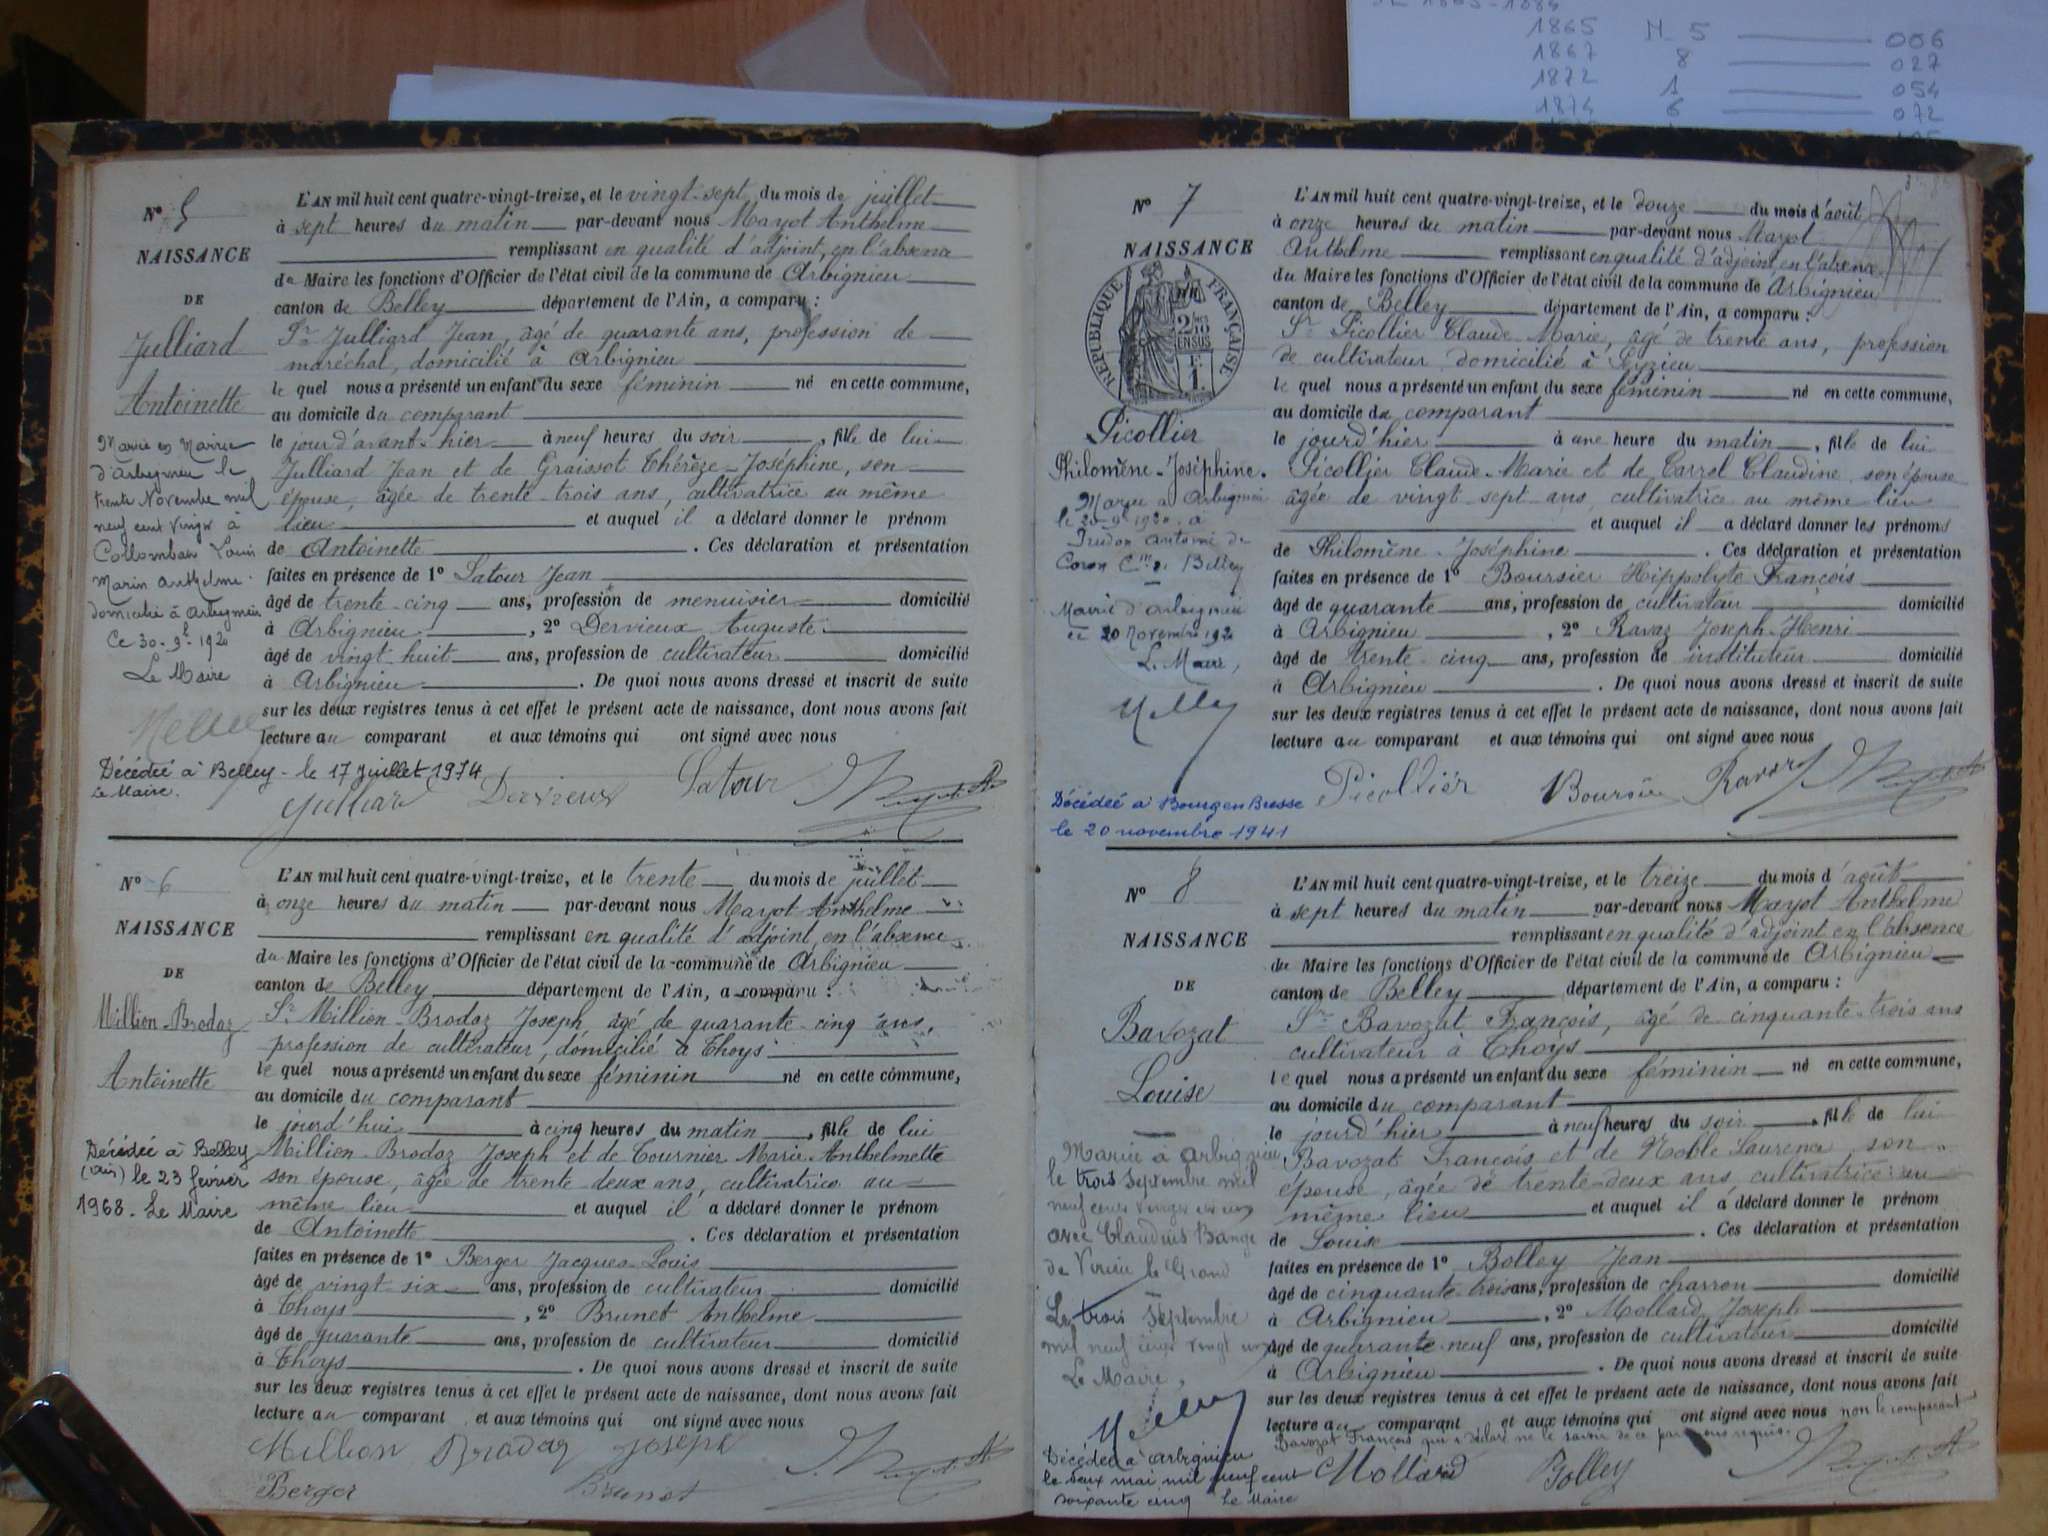 1865 N 5 006
1867 8 027
1872 1 054
1874 6 072
N° 5
NAISSANCE
DE
Julliard
Antoinette
Mariée en Mairie
d'Arbignieu le
trente Novembre mil
neuf cent vingt à
Collomban Louis
Marin Anthelme
domicilié à Arbignieu
Ce 30-9-1920
Le Maire
Décédée à Belley - le 17 juillet 1974
Le Maire.
L'AN mil huit cent quatre-vingt-treize, et le vingt-sept du mois de juillet
à sept heures du matin par-devant nous Mayot Anthelme
remplissant en qualité d'adjoint, en l'absence
du Maire les fonctions d'Officier de l'état civil de la commune de Arbignieu
canton de Belley département de l'Ain, a comparu :
Sr Julliard Jean, âgé de quarante ans, profession de
maréchal, domicilié à Arbignieu
le quel nous a présenté un enfant du sexe féminin né en cette commune,
au domicile du comparant
le jour d'avant-hier à neuf heures du soir, fille de lui
Julliard Jean et de Graissot Thérèze-Joséphine, son
épouse, âgée de trente-trois ans, cultivatrice au même
lieu et auquel il a déclaré donner le prénom
de Antoinette. Ces déclaration et présentation
faites en présence de 1° Latour Jean
âgé de trente-cinq ans, profession de menuisier domicilié
à Arbignieu, 2° Dervieux Auguste
âgé de vingt-huit ans, profession de cultivateur domicilié
à Arbignieu. De quoi nous avons dressé et inscrit de suite
sur les deux registres tenus à cet effet le présent acte de naissance, dont nous avons fait
lecture au comparant et aux témoins qui ont signé avec nous
Julliard Dervieux Latour
N° 6
NAISSANCE
DE
Million-Brodaz
Antoinette
Décédée à Belley
(Ain) le 23 février
1968. Le Maire
L'AN mil huit cent quatre-vingt-treize, et le trente du mois de juillet
à onze heures du matin par-devant nous Mayot Anthelme
remplissant en qualité d'adjoint, en l'absence
du Maire les fonctions d'Officier de l'état civil de la commune de Arbignieu
canton de Belley département de l'Ain, a comparu :
Sr Million-Brodaz Joseph, âgé de quarante-cinq ans,
profession de cultivateur, domicilié à Thoys
le quel nous a présenté un enfant du sexe féminin né en cette commune,
au domicile du comparant
le jourd'hui à cinq heures du matin, fille de lui
Million-Brodaz Joseph et de Tournier Marie-Anthelmette
son épouse, âgée de trente-deux ans, cultivatrice au
même lieu et auquel il a déclaré donner le prénom
de Antoinette. Ces déclaration et présentation
faites en présence de 1° Berger Jacques-Louis
âgé de vingt-six ans, profession de cultivateur domicilié
à Thoys, 2° Brunet Anthelme
âgé de quarante ans, profession de cultivateur domicilié
à Thoys. De quoi nous avons dressé et inscrit de suite
sur les deux registres tenus à cet effet le présent acte de naissance, dont nous avons fait
lecture au comparant et aux témoins qui ont signé avec nous
Million Brodaz Joseph
Berger Brunet
N° 7
NAISSANCE
RÉPUBLIQUE FRANÇAISE
2/10
EN SUS
1
Picollier
Philomène-Joséphine.
Mariée à Arbignieu
le 20-9-1920 à
Prudon Antoine de
Coron Cne de Belley
Mairie d'Arbignieu
20 Novembre 1920
Le Maire,
Décédée à Bourg en Bresse
le 20 novembre 1941
L'AN mil huit cent quatre-vingt-treize, et le douze du mois d'août
à onze heures du matin par-devant nous Mayot
Anthelme remplissant en qualité d'adjoint en l'absence
du Maire les fonctions d'Officier de l'état civil de la commune de Arbignieu
canton de Belley département de l'Ain, a comparu :
Sr Picollier Claude-Marie, âgé de trente ans, profession
de cultivateur, domicilié à Peyzieu
le quel nous a présenté un enfant du sexe féminin né en cette commune,
au domicile du comparant
le jourd'hier à une heure du matin, fille de lui
Picollier Claude-Marie et de Carrel Claudine son épouse
âgée de vingt-sept ans, cultivatrice au même lieu
et auquel il a déclaré donner les prénoms
de Philomène-Joséphine. Ces déclaration et présentation
faites en présence de 1° Boursier Hippolyte François
âgé de quarante ans, profession de cultivateur domicilié
à Arbignieu, 2° Ravaz Joseph-Henri
âgé de trente-cinq ans, profession de instituteur domicilié
à Arbignieu. De quoi nous avons dressé et inscrit de suite
sur les deux registres tenus à cet effet le présent acte de naissance, dont nous avons fait
lecture au comparant et aux témoins qui ont signé avec nous
Picollier Boursier Ravaz
N° 8
NAISSANCE
DE
Bavozat
Louise
Mariée à Arbignieu
le trois Septembre mil
neuf cent vingt
avec Claudius Bange
de Virieu le Grand
Le trois Septembre
mil neuf cent vingt
Le Maire,
Décédée à Arbignieu
le deux mai mil neuf cent
soixante cinq Le Maire
L'AN mil huit cent quatre-vingt-treize, et le treize du mois d'août
à sept heures du matin par-devant nous Mayot Anthelme
remplissant en qualité d'adjoint en l'absence
du Maire les fonctions d'Officier de l'état civil de la commune de Arbignieu
canton de Belley département de l'Ain, a comparu :
Sr Bavozat François, âgé de cinquante-trois ans
cultivateur à Thoys
le quel nous a présenté un enfant du sexe féminin né en cette commune,
au domicile du comparant
le jourd'hier à neuf heures du soir, fille de lui
Bavozat François et de Noble Laurence, son
épouse, âgée de trente-deux ans, cultivatrice au
même lieu et auquel il a déclaré donner le prénom
de Louise. Ces déclaration et présentation
faites en présence de 1° Bolley Jean
âgé de cinquante-trois ans, profession de charron domicilié
à Arbignieu, 2° Mollard Joseph
âgé de quarante-neuf ans, profession de cultivateur domicilié
à Arbignieu. De quoi nous avons dressé et inscrit de suite
sur les deux registres tenus à cet effet le présent acte de naissance, dont nous avons fait
lecture au comparant et aux témoins qui ont signé avec nous non le comparant
Bavozat François qui a déclaré ne le savoir de ce par nous requis.
Mollard Bolley